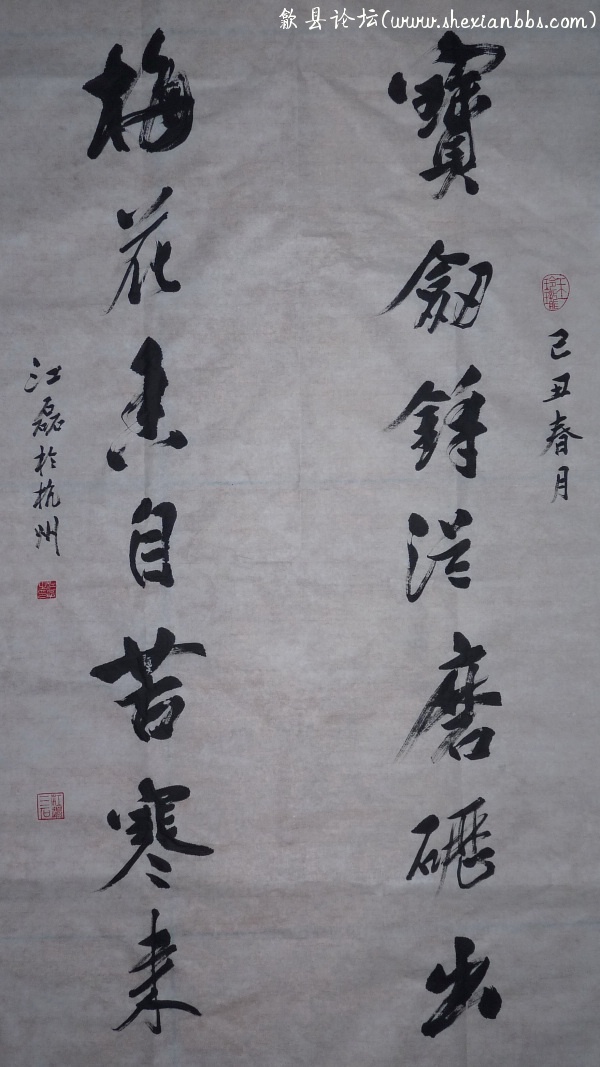 歙县论坛(www.shexianbbs.com)
己丑春月
寶劒鋒從磨礪出
梅花香自苦寒来
江磊於杭州